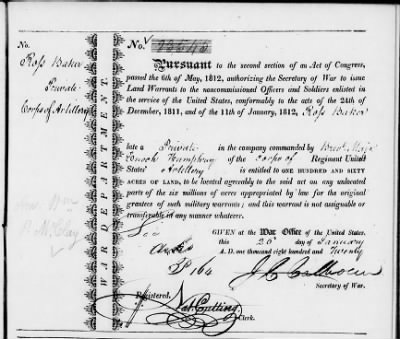 No.
Ross Baker
Private
Corps of Artillery
WAR DEPARTMENT.
No.
Pursuant to the second section of an Act of Congress,
passed the 6th of May, 1812, authorizing the Secretary of War to issue
Land Warrants to the noncommissioned Officers and Soldiers enlisted
in the service of the United States, conformably to the acts of the 24th of
December, 1811, and of the 11th of January, 1812, Ross Baker
late a Private in the company commanded by Brevt. Major
Enoch Humphrey of the Corps of Regiment United
States' Artillery is entitled to ONE HUNDRED AND SIXTY
ACRES OF LAND, to be located agreeably to the said act on any unlocated
part of the six millions of acres appropriated by law for the original
grantees of such military warrants; and this warrant is not assignable or
transferable in any manner whatever.
GIVEN at the War Office of the United States.
this 26th day of January
A. D. one thousand eight hundred and Twenty
P 164
J. C. Calhoun
Secretary of War.
Registered,
Nat. Cutting
Clerk.